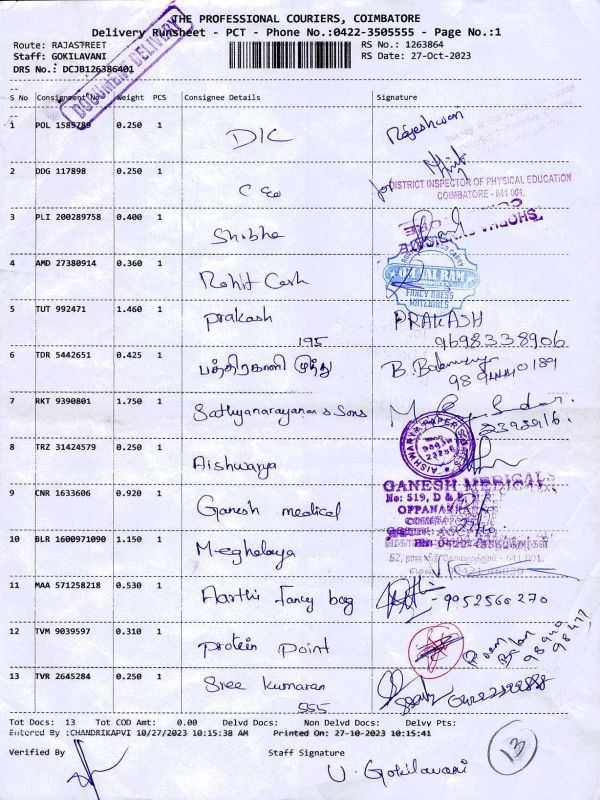 THE PROFESSIONAL COURIERS, COIMBATORE
Delivery Runsheet - PCT - Phone No.:0422-3505555 - Page No.:1
Route: RAJASTREET RS No.: 1263864
Staff: GOKILAVANI RS Date: 27-Oct-2023
DRS No.: DCJB126386401
DOCUMENT DELIVERY
S No Consignment No Weight PCS Consignee Details Signature
1 POL 1589789 0.250 1 DIC Rajeshwari
2 DDG 117898 0.250 1 C Eo
for DISTRICT INSPECTOR OF PHYSICAL EDUCATION
COIMBATORE - 641 001.
3 PLI 200289758 0.400 1 Shobha
4 AMD 27380914 0.360 1 Rohit Cash
FANCY DRESS
MATERIALS
5 TUT 992471 1.460 1 prakash PRAKASH
195 9698338906
6 TDR 5442651 0.425 1 பத்திரகாளி முத்து
7 RKT 9390801 1.750 1 Sathyanarayana & Sons
8 TRZ 31424579 0.250 1 Aishwarya
AISHWARYA PAPER STORES
9 CNR 1633606 0.920 1 Ganesh medical
GANESH MEDICALS
No: 519, D & E
OPPANAKKARA
10 BLR 1600971090 1.150 1 Meghalaya
11 MAA 571258218 0.530 1 Aarthi fancy bag - 9052566270
12 TVM 9039597 0.310 1 protein point
13 TVR 2645284 0.250 1 Sree kumaran
555
Tot Docs: 13 Tot COD Amt: 0.00 Delvd Docs: Non Delvd Docs: Delvy Pts:
Entered By :CHANDRIKAPVI 10/27/2023 10:15:38 AM Printed On: 27-10-2023 10:15:41
Verified By Staff Signature 13
U. Gokilavani